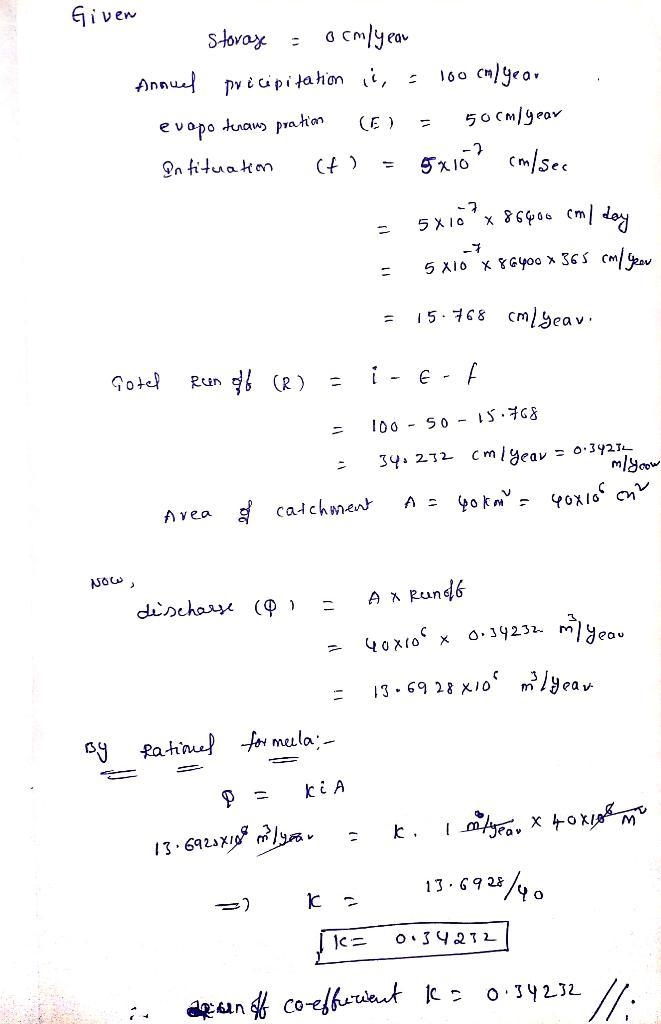 Given
Storage = 0 cm/year
Annuel pricipitation i, = 100 cm/year
evapo trans pration (E) = 50 cm/year
Infituation (f) = 5x10⁻⁷ cm/sec
= 5x10⁻⁷ x 86400 cm/day
= 5x10⁻⁷ x 86400 x 365 cm/year
= 15.768 cm/year.
Total Run off (R) = i - E - f
= 100 - 50 - 15.768
= 34.232 cm/year = 0.34232 m/year
Area of catchment A = 40 km² = 40x10⁶ m²
Now,
discharge (Q) = A x Runoff
= 40x10⁶ x 0.34232 m³/year
= 13.6928 x10⁶ m³/year
By Rational formula:-
Q = KiA
13.6928x10⁶ m³/year = K. 1 m/year x 40x10⁶ m²
=) K = 13.6928/40
K = 0.34232
∴ run off co-effucient K = 0.34232 //.